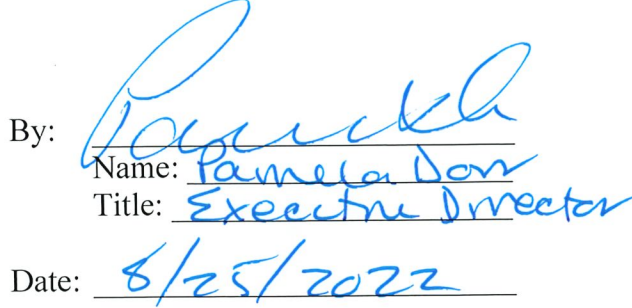 By:
Name: Pamela Dorr
Title: Executive Director
Date: 8/25/2022